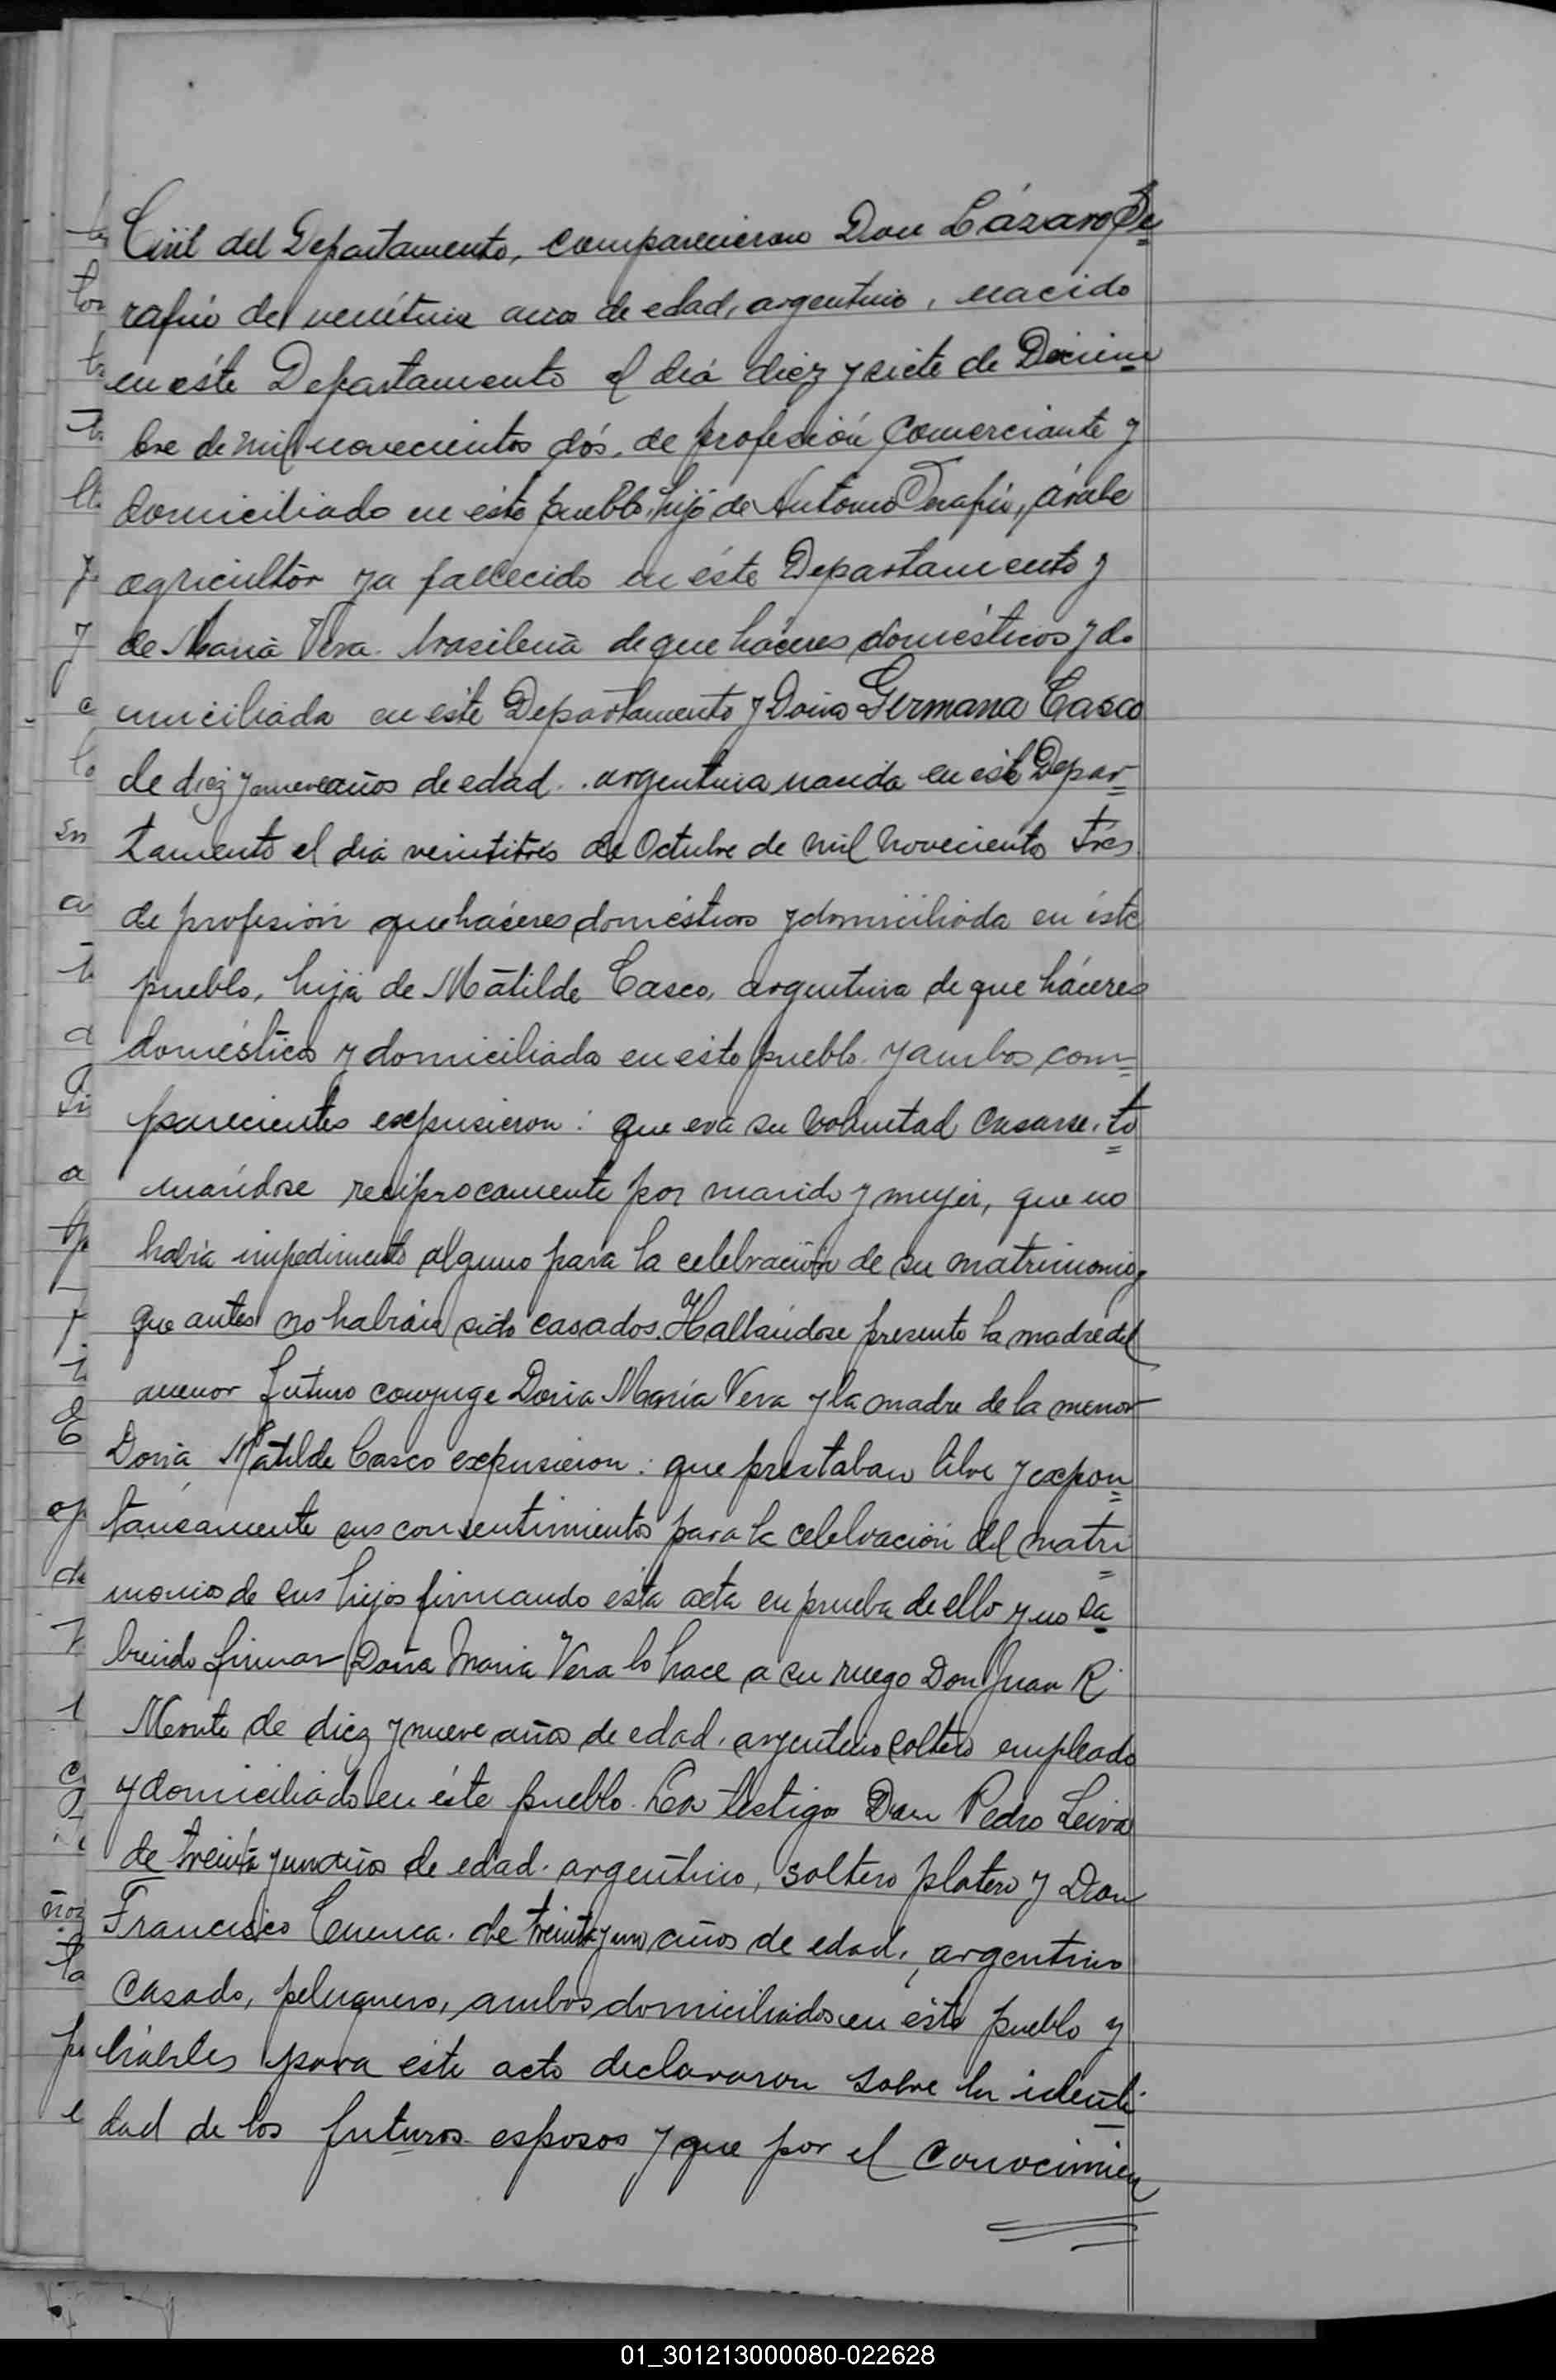 Civil del Departamento, comparecieron Don Lázaro Se=
rafin de veintiun años de edad, argentino, nacido
en éste Departamento el día diez y siete de Diciem=
bre de mil novecientos dós, de profesión comerciante y
domiciliado en éste pueblo, hijo de Antonio Serafin, árabe
agricultor ya fallecido en éste Departamento y
de María Vera. brasileña de que háceres domésticos y do
miciliada en este Departamento y Doña Germana Casco
de diez y nueve años de edad. argentina nacida en este Depar=
tamento el día veintitrés de Octubre de mil novecientos trés.
de profesión que háceres domésticos y domiciliada en éste
pueblo, hija de Matilde Casco, argentina de que háceres
domésticos y domiciliada en este pueblo. y ambos com=
parecientes expusieron: que era su voluntad casarse, to=
mándose recíprocamente por marido y mujer, que no
había impedimento alguno para la celebración de su matrimonio y
que antes no habían sido casados. Hallándose presente la madre del
menor futuro conyuge Doña María Vera y la madre de la menor
Doña Matilde Casco expusieron: que prestaban libre y expon=
táneamente sus consentimientos para la celebración del matri=
monio de sus hijos firmando ésta acta en prueba de ello y no sa=
biendo firmar Doña Maria Vera lo hace a su ruego Don Juan R.
Monte de diez y nueve años de edad, argentino soltero empleado
y domiciliado en éste pueblo. Los testigos Don Pedro Leiva
de treinta y un años de edad. argentino, soltero platero y Don
Francisco Cuenca. de treinta y uno años de edad, argentino
casado, peluquero, ambos domiciliados en éste pueblo y
hábiles para este acto declararon sobre la identi=
dad de los futuros esposos y que por el conocimien
01_301213000080-022628